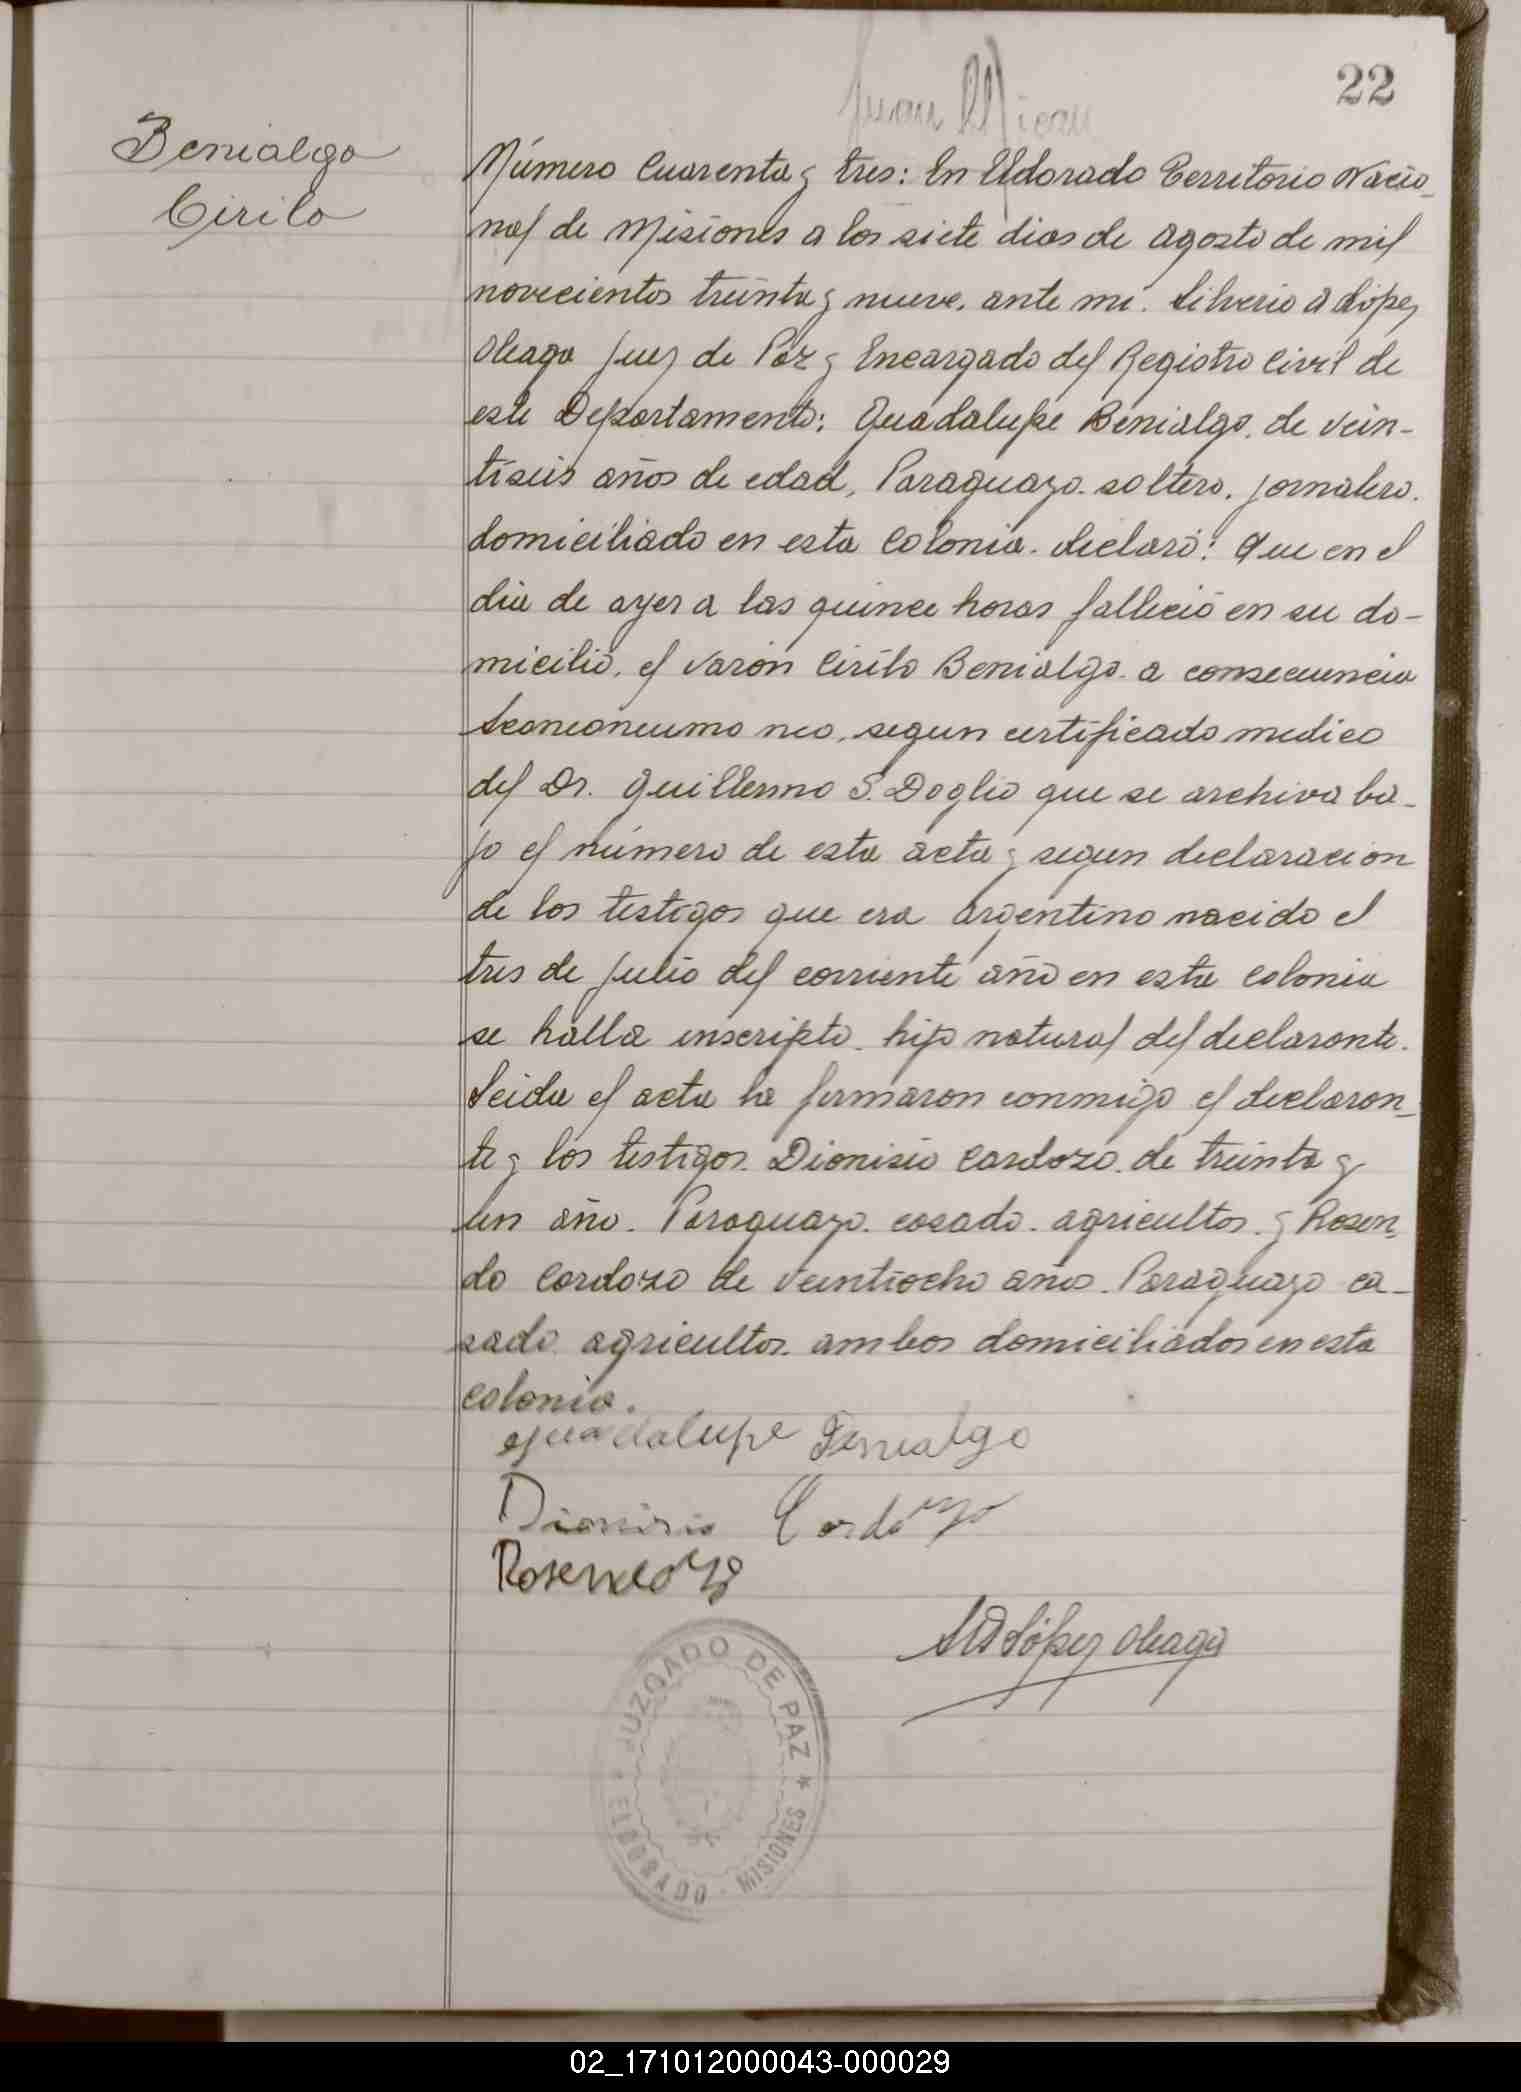 22
Benialgo
Cirilo
Número Cuarenta y tres: En Eldorado Territorio Nacio-
nal de Misiones a los siete dias de agosto de mil
novecientos treinta y nueve, ante mi. Silverio A López
Oleaga Juez de Paz y Encargado del Registro Civil de
este Departamento: Guadalupe Benialgo. de vein-
tiseis años de edad, Paraguayo. soltero. jornalero.
domiciliado en esta Colonia. declaró: Que en el
dia de ayer a las quince horas falleció en su do-
micilio, el varón Cirilo Benialgo. a consecuencia
segun certificado medico
del Dr. Guillermo S. Doglio que se archiva ba-
jo el número de esta acta y segun declaracion
de los testigos que era argentino nacido el
tres de Julio del corriente año en esta colonia
se halla inscripto. hijo natural del declarante.
Leida el acta la firmaron conmigo el declaran-
te y los testigos. Dionisio Cardozo. de treinta y
un año. Paraguayo. casado. agricultor. y Rosen-
do Cardozo de veintiocho años. Paraguayo ca-
sado agricultor. ambos domiciliados en esta
colonia.
Guadalupe Benialgo
Dionisio Cardozo
SA López Oleaga
JUZGADO DE PAZ * ELDORADO - MISIONES *
02_171012000043-000029